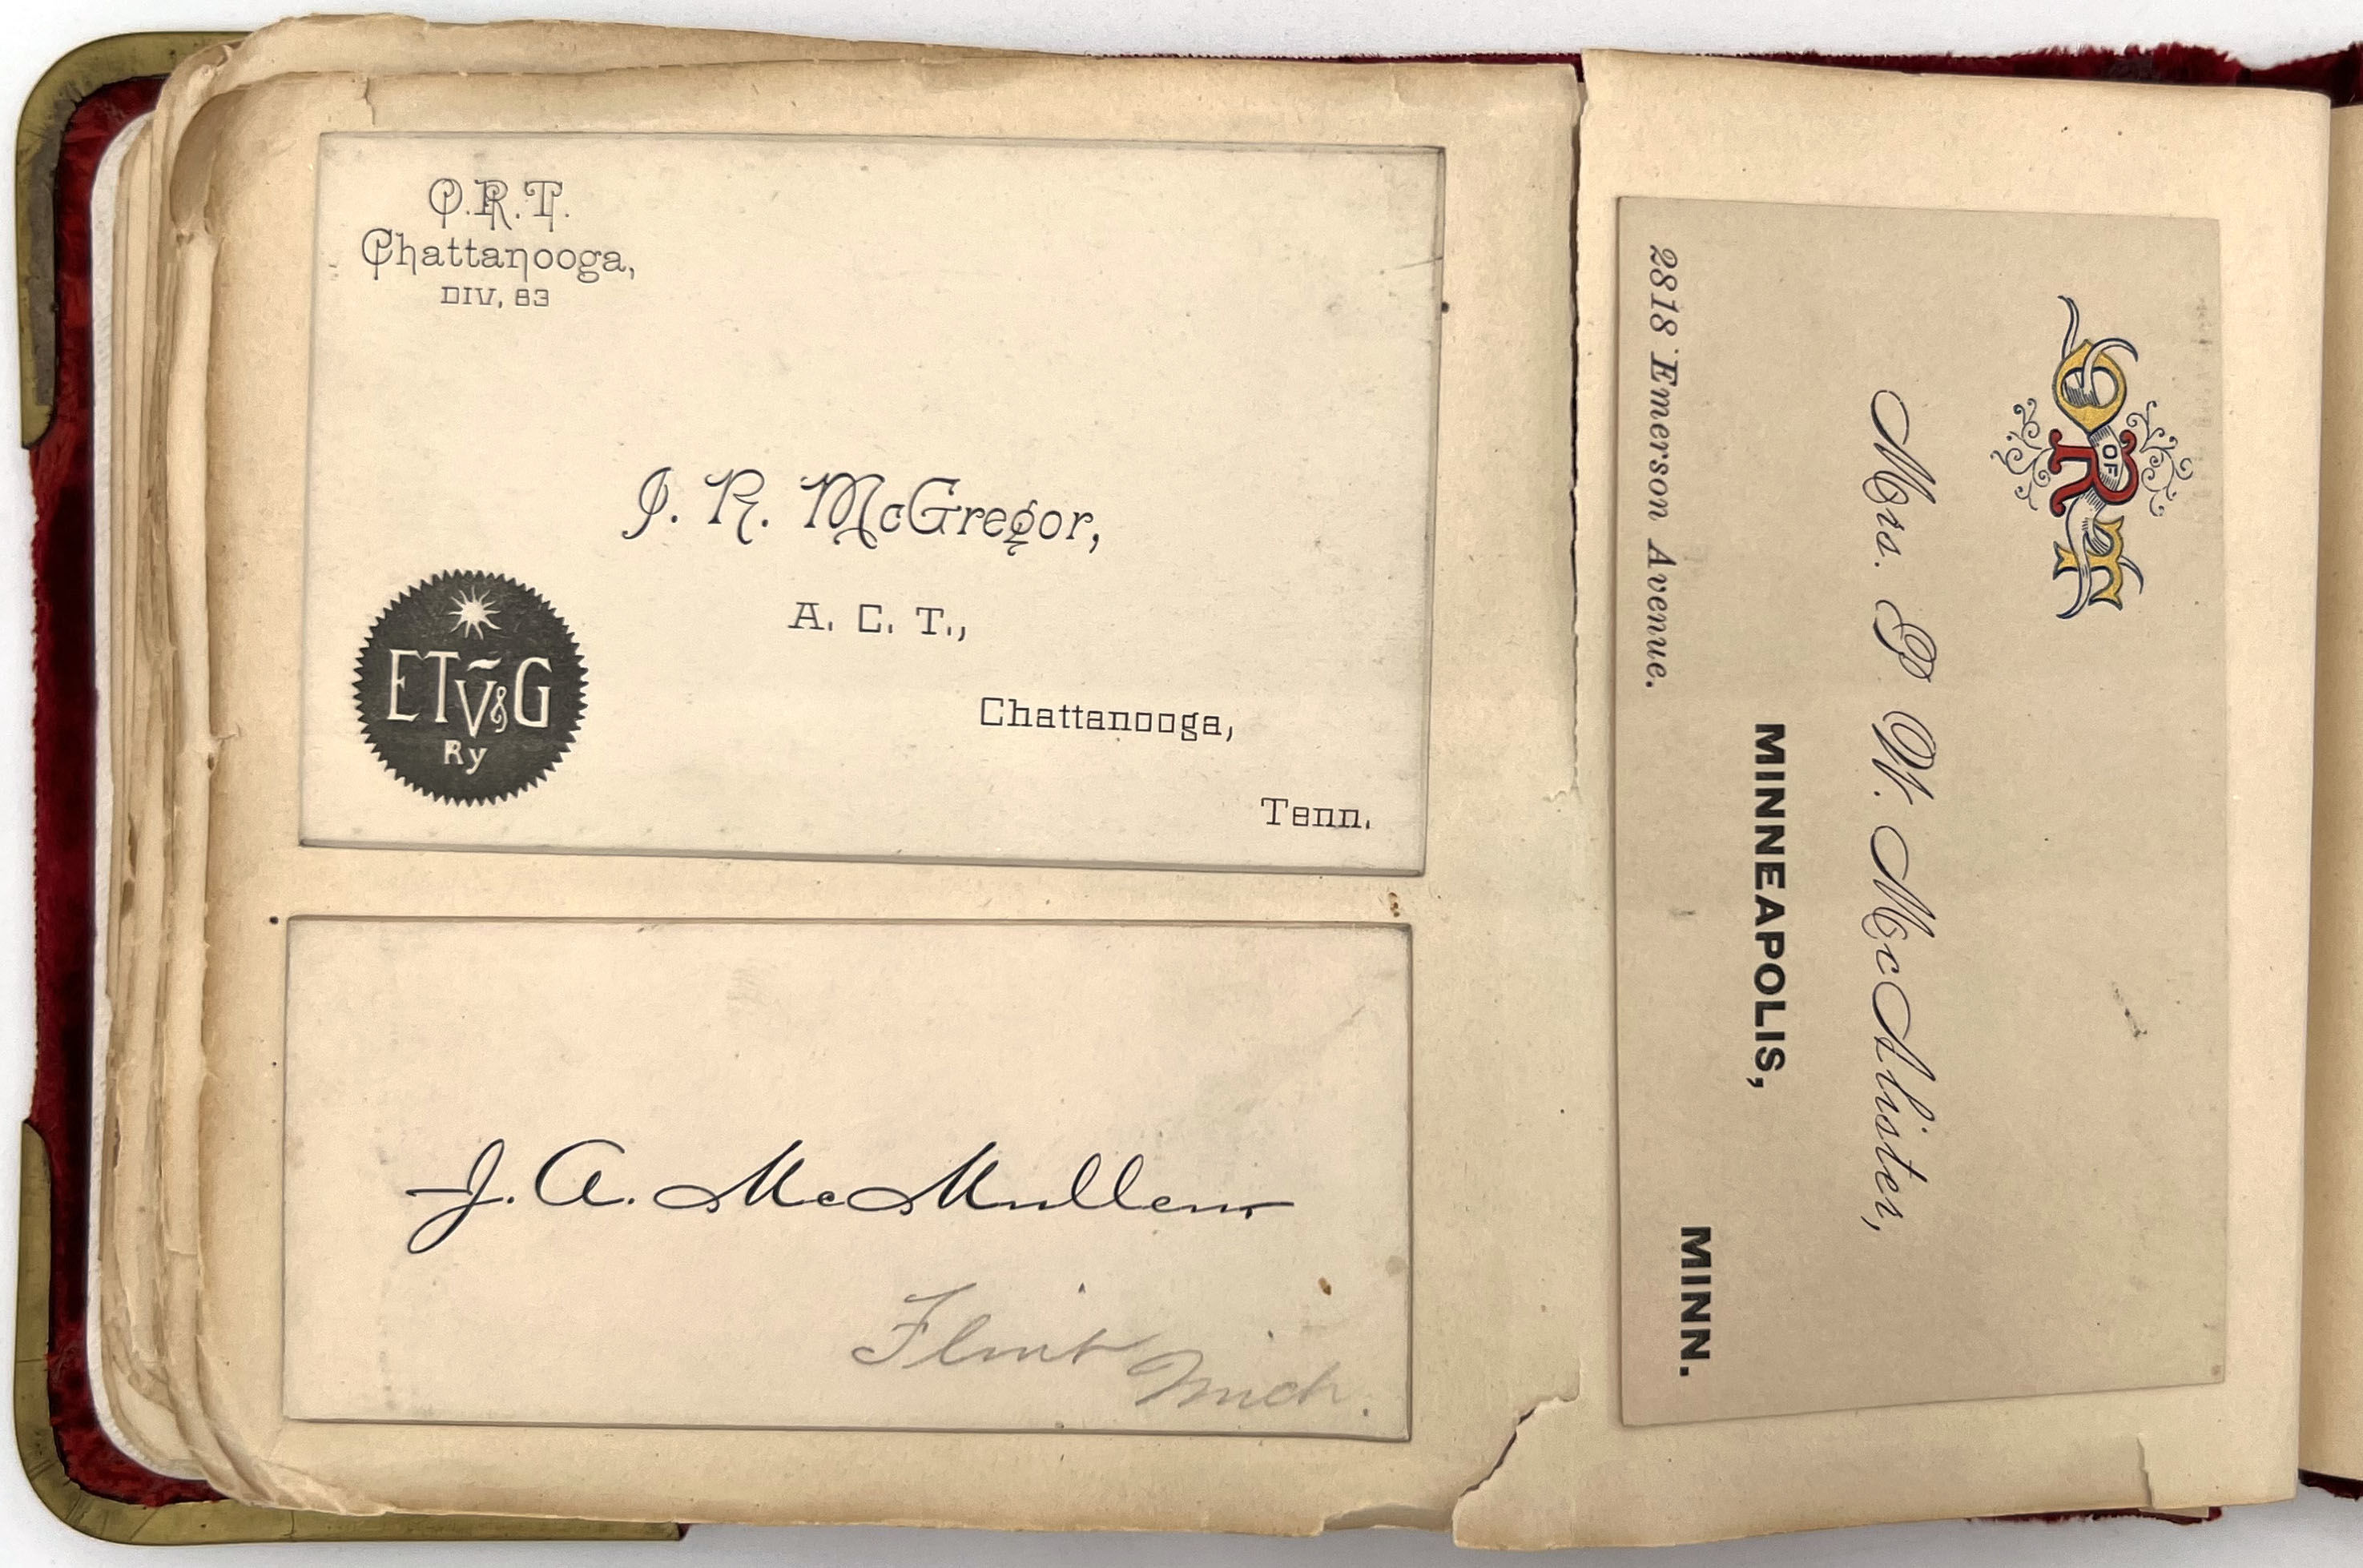 O.R.T.
Chattanooga,
DIV, 83
J. R. McGregor,
A. C. T.,
Chattanooga,
Tenn.
ETV&G
Ry
J. A. McMullen
Flint Mich.
O OF R T
Mrs. P. W. McAlister,
MINNEAPOLIS,
MINN.
2818 Emerson Avenue.